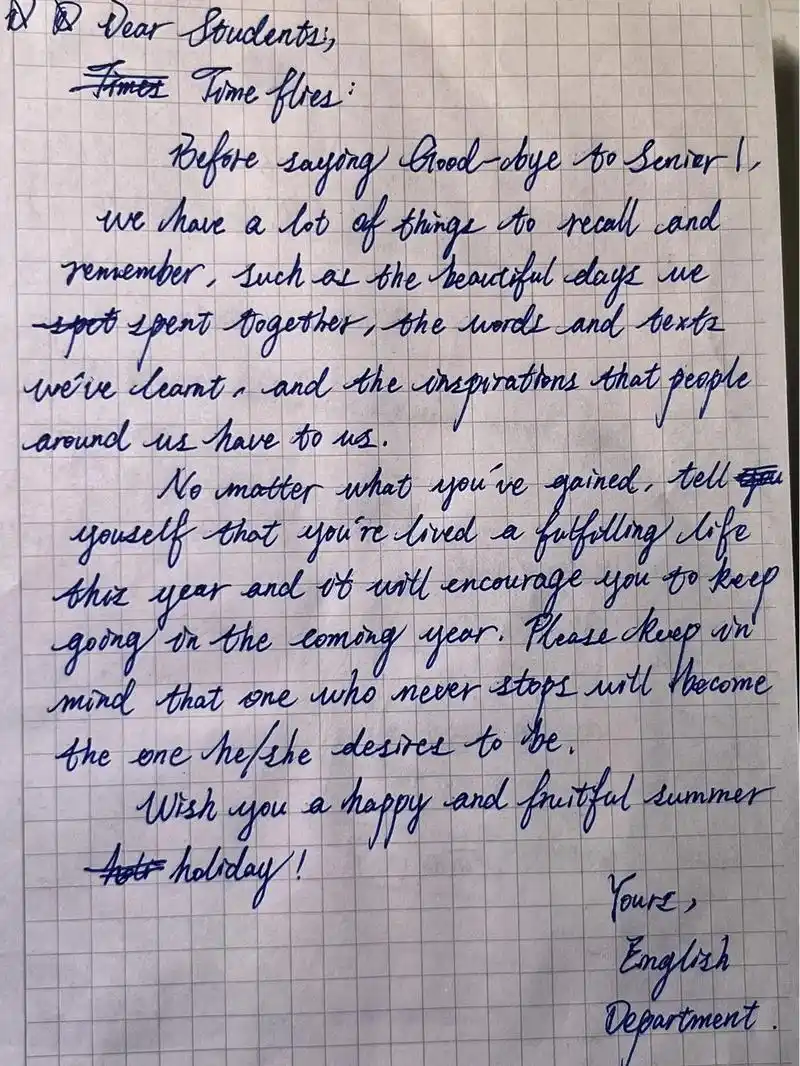 Dear Students:,
Times Time flies:
Before saying Good-bye to Senior 1,
we have a lot of things to recall and
remember, such as the beautiful days we
spet spent together, the words and texts
we've learnt, and the inspirations that people
around us have to us.
No matter what you've gained, tell you
youself that you're lived a fulfilling life
this year and it will encourage you to keep
going in the coming year. Please keep in
mind that one who never stops will become
the one he/she desires to be.
Wish you a happy and fruitful summer
holiday!
Yours,
English
Department.